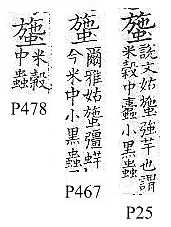 䗐
米穀
中蟲
P478
䗐
爾雅姑䗐彊蛘
今米中小黑蟲一
P467
䗐
說文姑䗐強芊也謂
米穀中蠹小黑蟲一
P25